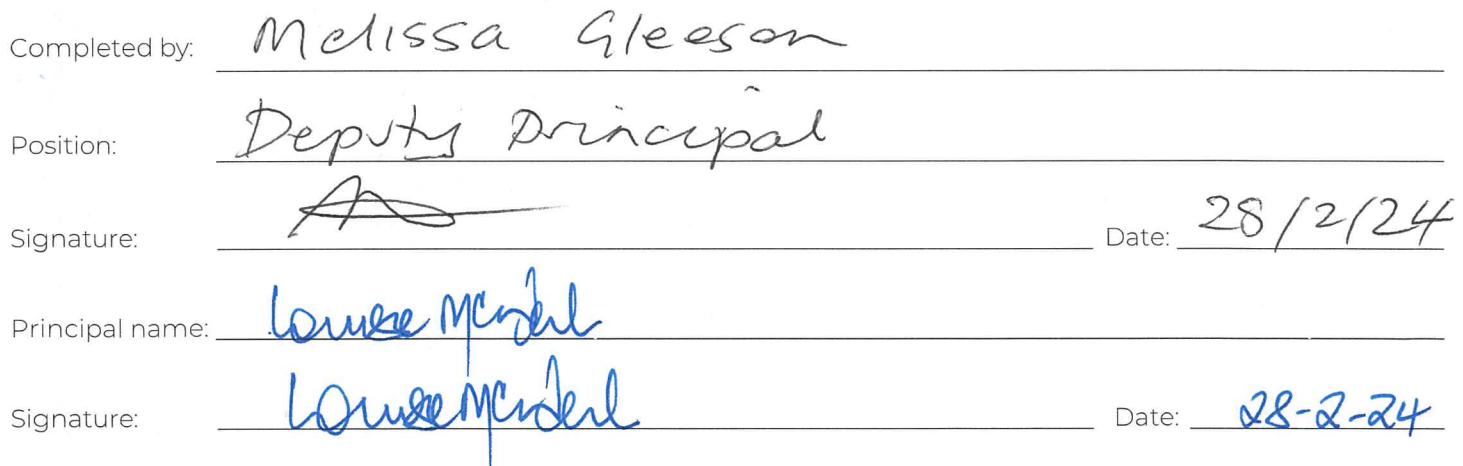 Completed by: Melissa Gleeson
Position: Deputy Principal
Signature:
Date: 28/2/24
Principal name: Louise
Signature: Louise
Date: 28-2-24